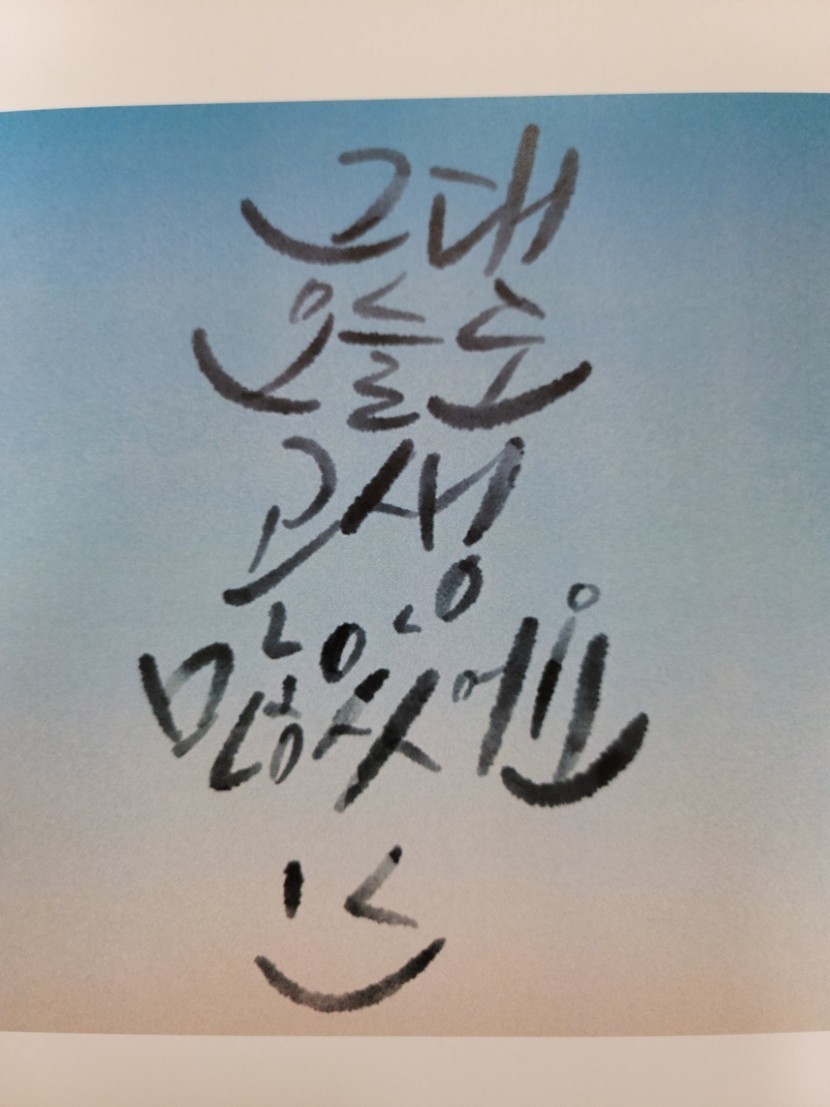 그대
오늘도
고생
많았어요